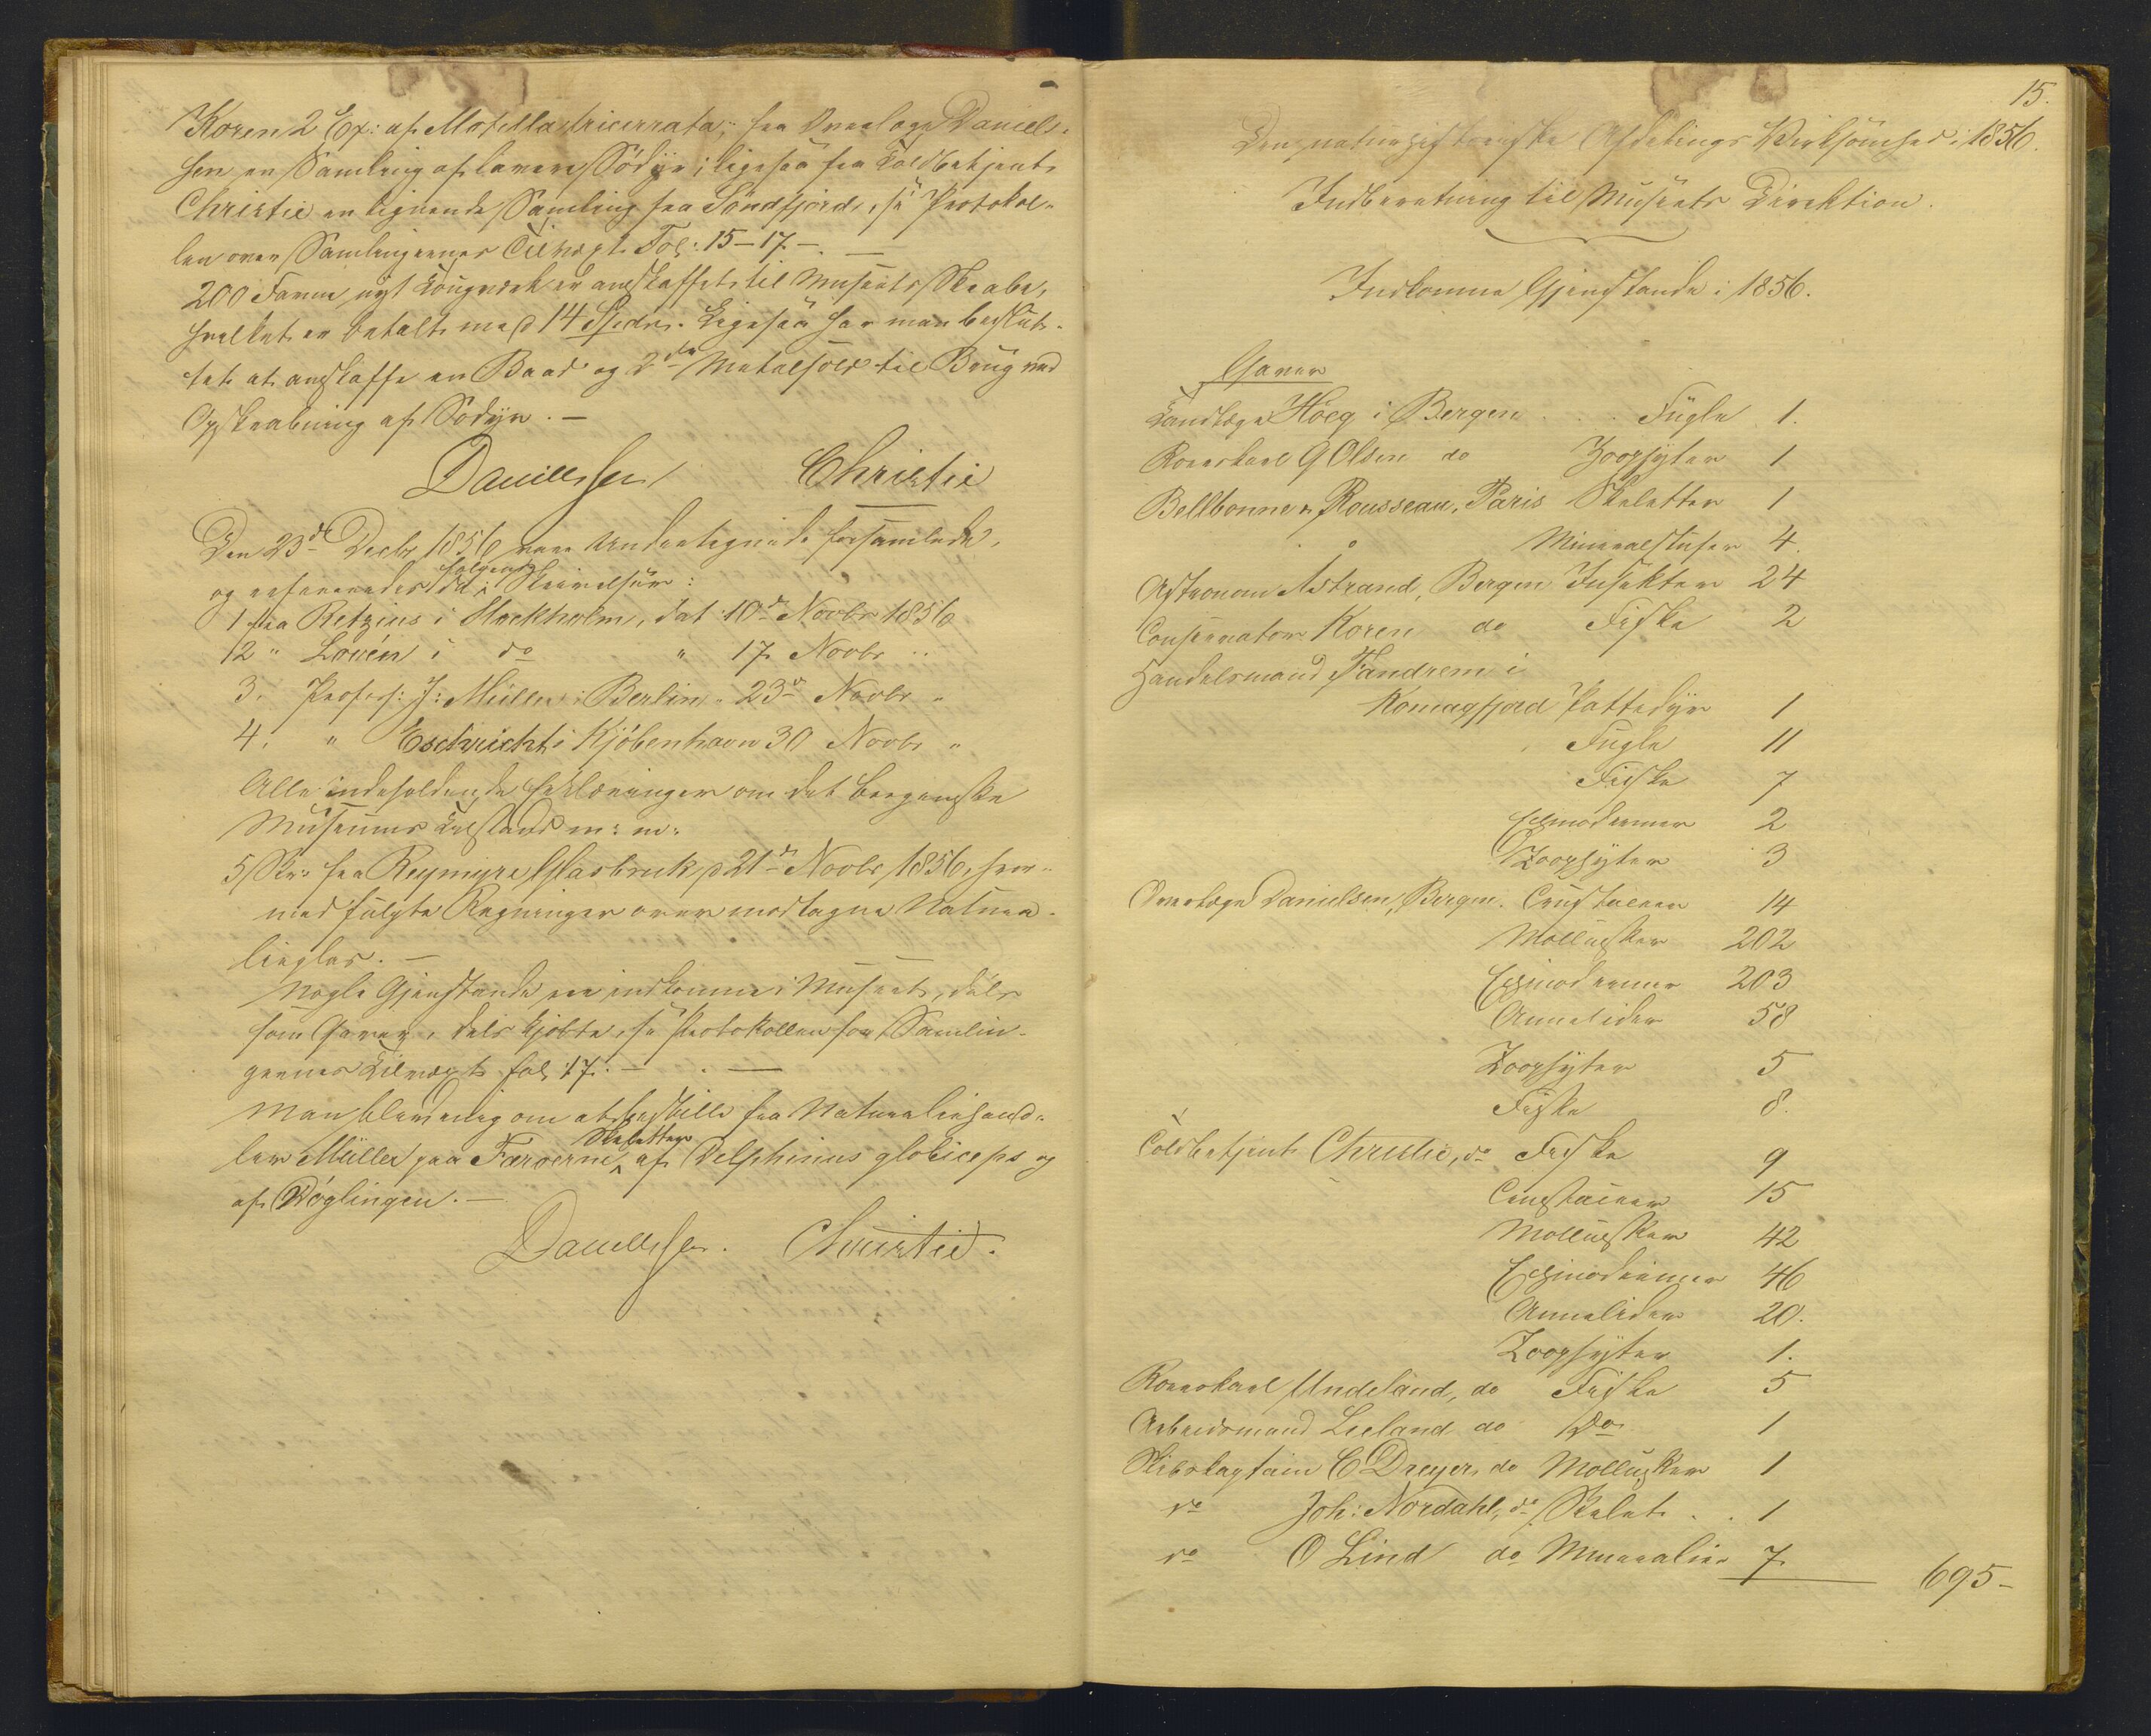 Koren 2 Ex: af Motella tricirrata; fra Overlæge Daniels-
sen en Samling af lavere Södyr; ligesaa fra Toldbetjent
Christie en lignende Samling fra Söndfjord, se Protokol-
len over Samlingernes Tilvæxt Fol: 15-17. —
200 Favne nyt Tougværk er anskaffet til Museets Skrabe,
hvilket er betalt med 14 Spdr. Ligesaa har man beslut-
tet at anskaffe en Baad og 2de Metalsold til Brug ved
Opskrabning af Södyr. —
Danielssen Christie
Den 23de Decbr 1856 vare Undertegnede forsamlede,
og refereredes da følgende Skrivelser:
1 fra Retzius i Stockholm, dat. 10de Novbr 1856
2 " Lovén i do " 17 Novbr "
3. Profess: J: Müller i Berlin " 23de Novbr "
4. " Eschricht i Kjöbenhavn 30 Novbr "
Alle indeholdende Erklæringer om det bergenske
Museums Tilstand m: m:
5 Skr: fra Reymyre Glasbruk d 21de Novbr 1856, hvor-
med fulgte Regninger over modtagne Natura-
lieglas. —
Nogle Gjenstande ere indkomne i Museet, dels
som Gaver, dels kjöbte, se Protokollen for Samlin-
gernes Tilvæxt fol: 17. —
Man blev enig om at bestille fra Naturaliehand-
ler Müller paa Færøerne Skeletter af Delphinus globiceps og
af Döglingen. —
Danielssen. Christie.
15.
Den naturhistoriske Afdelings Virksomhed i 1856.
Indberetning til Museets Direktion.
Indkomne Gjenstande i 1856.
Gaver
Tandlæge Höeg i Bergen . . Fugle 1.
Roerskarl G Olsen do Zoophyter 1
Bellbonne & Rousseau, Paris Skeletter 1
Mineralstufer 4.
Astronom Åstrand, Bergen Insekter 24
Conservator Koren do Fiske 2
Handelsmand Fandrem i
Komagfjord Pattedyr 1
Fugle 11
Fiske 7
Echinodermer 2
Zoophyter 3
Overlæge Danielsen, Bergen. Crustaceer 14
Mollusker 202
Echinodermer 203
Annelider 58
Zoophyter 5
Fiske 8.
Toldbetjent Christie, do Fiske 9
Crustaceer 15
Mollusker 42
Echinodermer 46
Annelider 20.
Zoophyter 1.
Roerskarl Undeland, do Fiske 5
Arbeidsmand Lieland do Do 1
Skibskaptain C Dreyer, do Mollusker 1
do Joh: Nordahl, do Skelet . . 1
do O Lind do Mineralier 7
695-